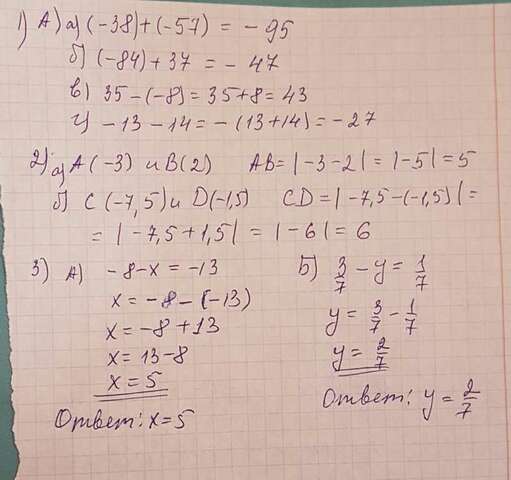 1) А) а) (-38)+(-57) = -95
б) (-84)+37 = -47
в) 35-(-8)=35+8=43
г) -13-14=-(13+14)=-27
2) а) А(-3) и В(2) АВ=|-3-2|=|-5|=5
б) С(-7,5) и D(-1,5) CD=|-7,5-(-1,5)|=
=|-7,5+1,5|=|-6|=6
3) А) -8-x=-13
x=-8-(-13)
x=-8+13
x=13-8
x=5
Ответ: x=5
Б) 3/7 - y = 1/7
y = 3/7 - 1/7
y = 2/7
Ответ: y = 2/7